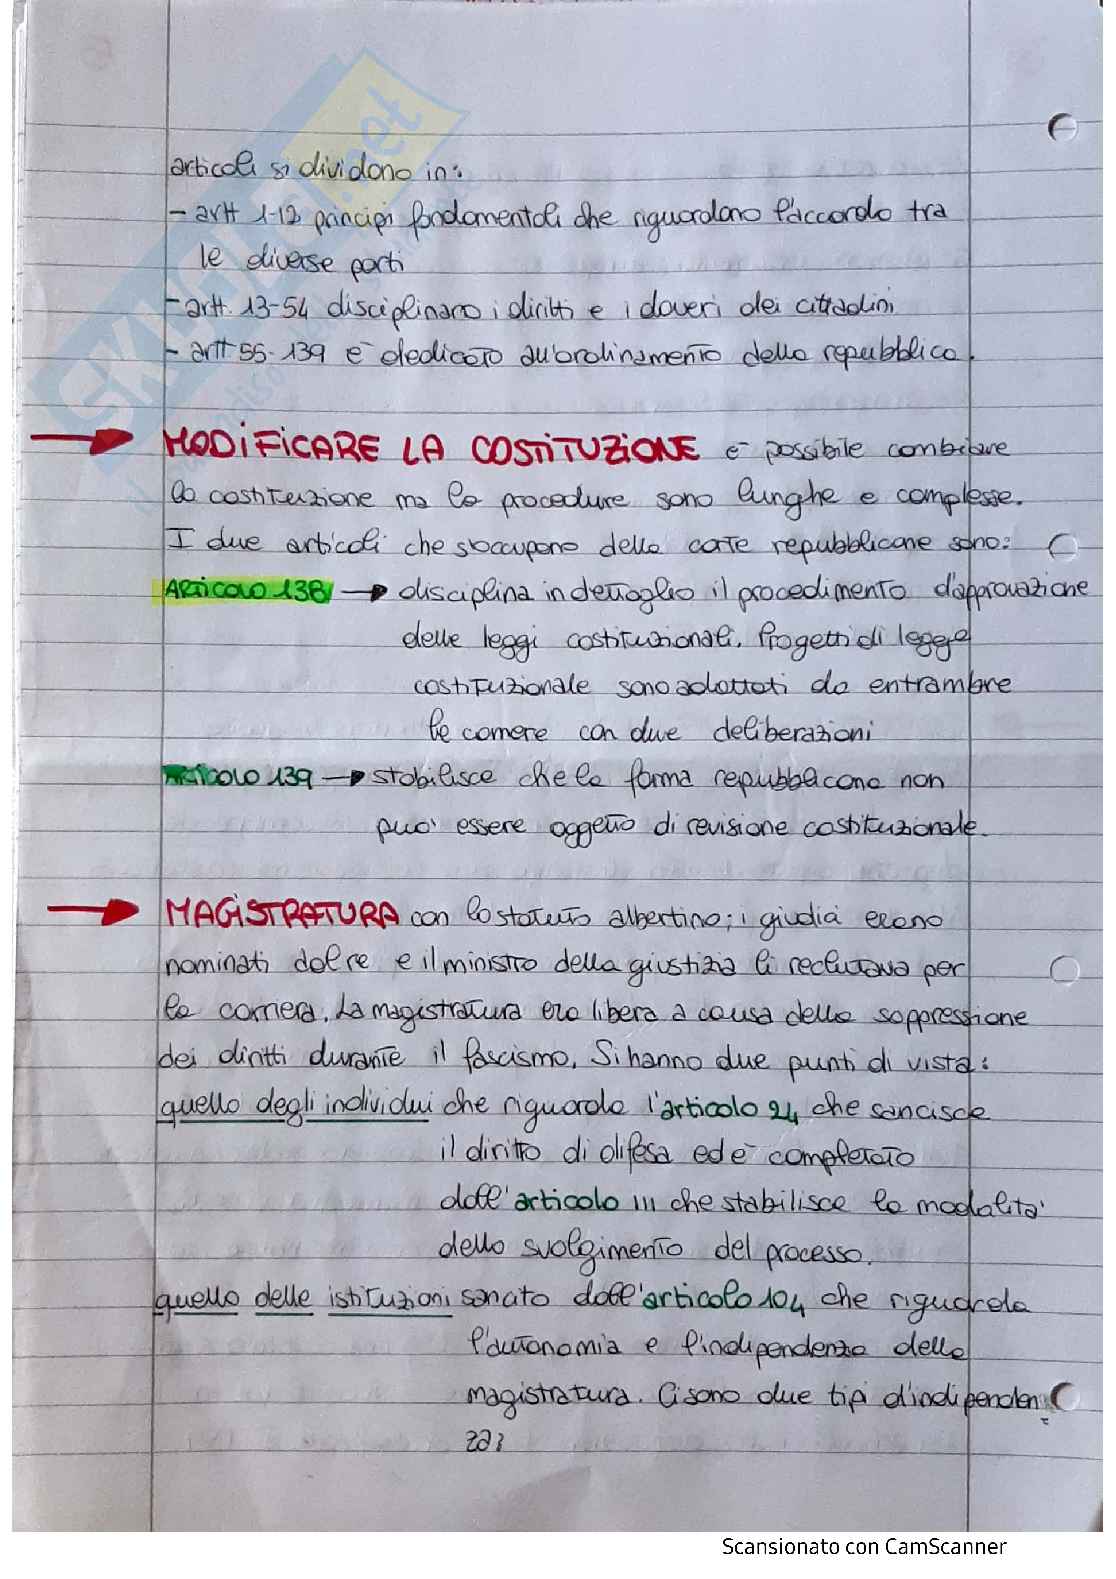 articoli si dividono in:
- artt 1-12 principi fondamentali che riguardano l'accordo tra
le diverse parti
- artt. 13-54 disciplinano i diritti e i doveri dei cittadini
- artt 55-139 è dedicato all'ordinamento della repubblica.
MODIFICARE LA COSTITUZIONE è possibile cambiare
la costituzione ma le procedure sono lunghe e complesse.
I due articoli che s'occupano della carte repubblicane sono:
ARTICOLO 138 → disciplina in dettaglio il procedimento d'approvazione
delle leggi costituzionali. Progetti di legge
costituzionale sono adottati da entrambre
le camere con due deliberazioni
ARTICOLO 139 → stabilisce che la forma repubblicana non
può essere oggetto di revisione costituzionale.
MAGISTRATURA con lo statuto albertino; i giudici erano
nominati dal re e il ministro della giustizia li reclutava per
la carriera. La magistratura era libera a causa della soppressione
dei diritti durante il fascismo. Si hanno due punti di vista:
quello degli individui che riguarda l'articolo 24 che sancisce
il diritto di difesa ed è completato
dall'articolo 111 che stabilisce la modalità
dello svolgimento del processo.
quello delle istituzioni sancito dall'articolo 104 che riguarda
l'autonomia e l'indipendenza della
magistratura. Ci sono due tipi d'indipenden
za:
Scansionato con CamScanner